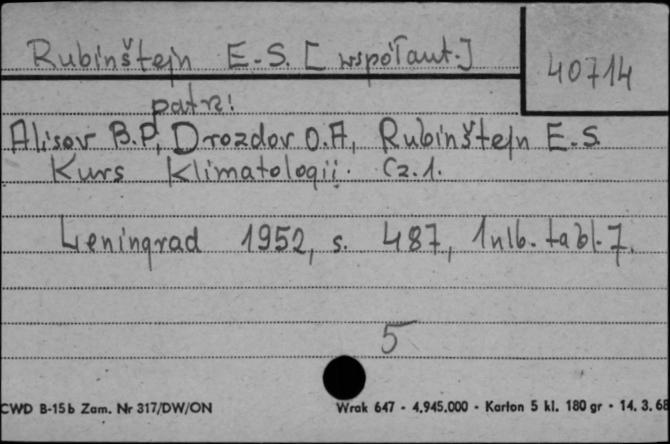 Rubinštejn E.S. [współaut.]
40714
patrz:
Alisov B.P, Drozdov O.A, Rubinštejn E.S.
Kurs Klimatologii. Cz.1.
Leningrad 1952, s. 487, 1nlb. tabl. 7.
5
CWD B-15b Zam. Nr 317/DW/ON
Wrak 647 - 4.945.000 - Karton 5 kl. 180 gr - 14. 3. 68